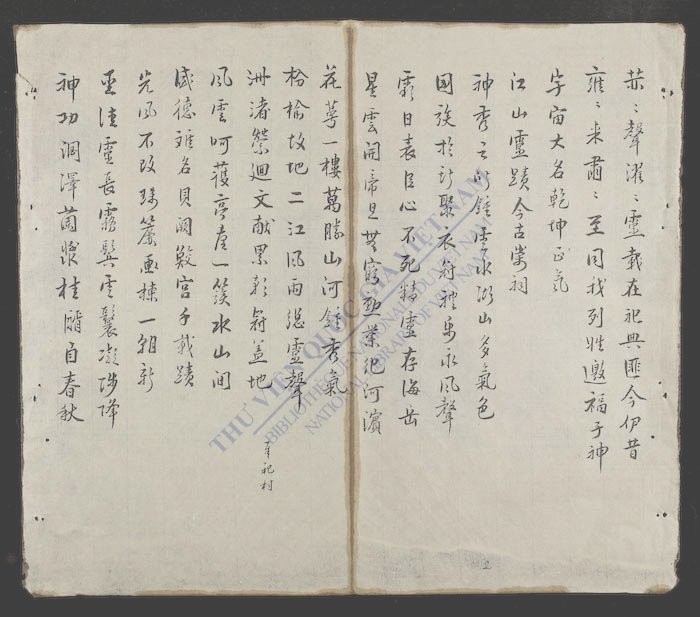 赫〻聲濯〻靈載在祀典匪今伊昔
雍〻來肅〻至同我列姓邀福于神
宇宙大名乾坤正氣
江山靈蹟今古崇祠
神秀之所鍾雲水湖山多氣色
國族於斯聚衣冠禮樂永風聲
霜日表臣心不死精靈存海岳
星雲開帝旦無窮勳業紀河濱
2
花萼一樓萬勝山河鍾秀氣
枌榆故地二江風雨總靈聲
奉祀村
洲渚縈迴文献累彰冠盖地
風雲呵護亭臺一簇水山間
盛德难名貝闕鮫宮千載蹟
光風不改珠簾画棟一朝新
靈長霧鬂雲鬟凝陟降
神功润澤蘭漿桂醑自春秋
THƯ VIỆN QUỐC GIA VIỆT NAM
BIBLIOTHÈQUE NATIONALE DU VIETNAM
NATIONAL LIBRARY OF VIETNAM